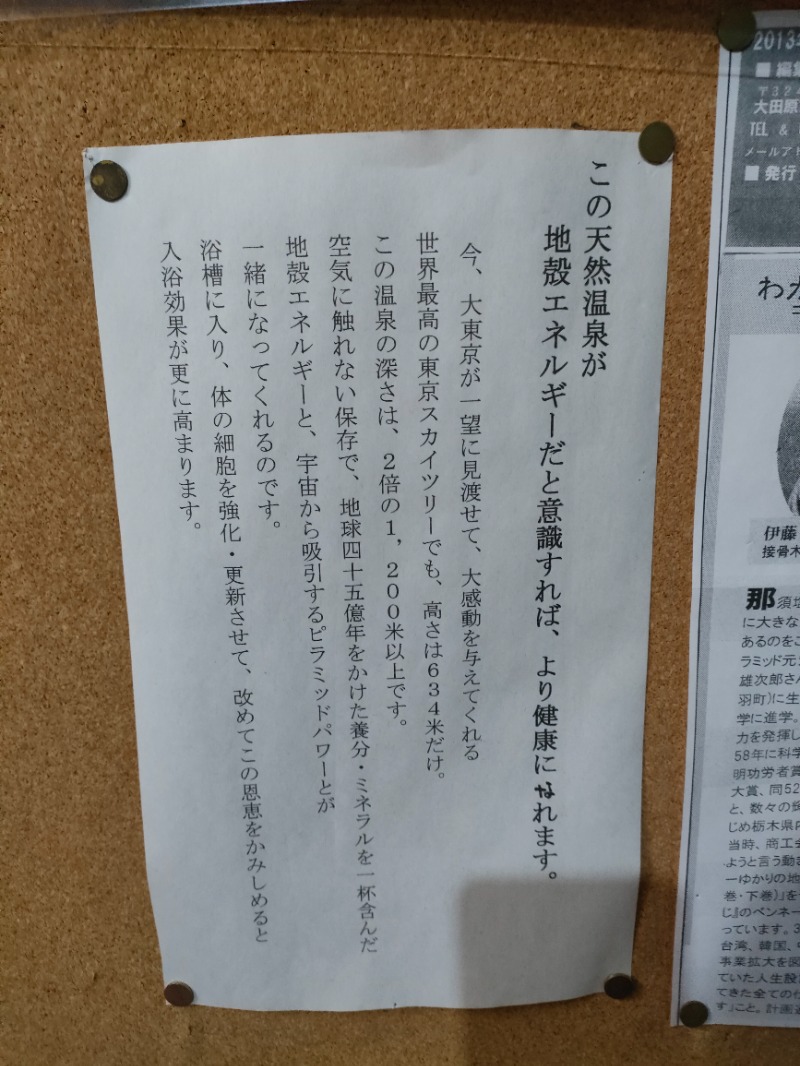 この天然温泉が
地殻エネルギーだと意識すれば、より健康になれます。
今、大東京が一望に見渡せて、大感動を与えてくれる
世界最高の東京スカイツリーでも、高さは634米だけ。
この温泉の深さは、2倍の1,200米以上です。
空気に触れない保存で、地球四十五億年をかけた養分・ミネラルを一杯含んだ
地殻エネルギーと、宇宙から吸引するピラミッドパワーとが
一緒になってくれるのです。
浴槽に入り、体の細胞を強化・更新させて、改めてこの恩恵をかみしめると
入浴効果が更に高まります。
2013
■ 編集
〒324
大田原
TEL &
メールアド
■ 発行
わか
伊藤
接骨木
那須塩
に大きな
あるのをこ
ラミッド元
雄次郎さん
羽町)に生
学に進学。
力を発揮し
58年に科学
明功労者賞
大賞、同52
と、数々の
じめ栃木県内
当時、商工会
ようと言う動き
一ゆかりの地
巻・下巻)」を
じ』のペンネー
っています。3
台湾、韓国、
事業拡大を図
ていた人生設
てきた全ての仕
す」こと。計画